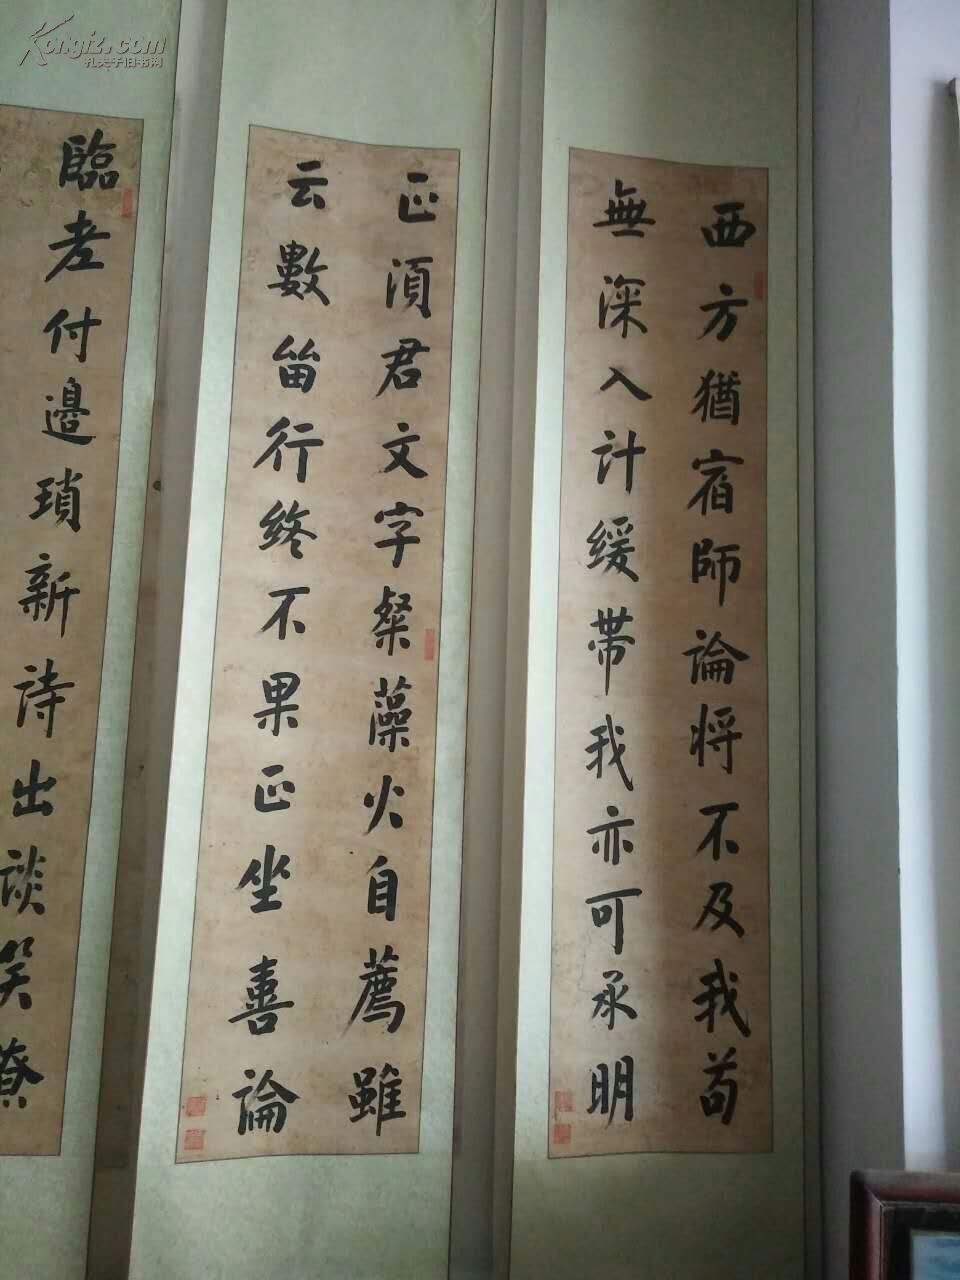 西方猶宿師論將不及我苟
無深入計緩帶我亦可承明
正須君文字粲藻火自薦雖
云數留行終不果正坐喜論
臨老付邊瑣新詩出談笑僚
Kongfz.com
孔夫子旧书网